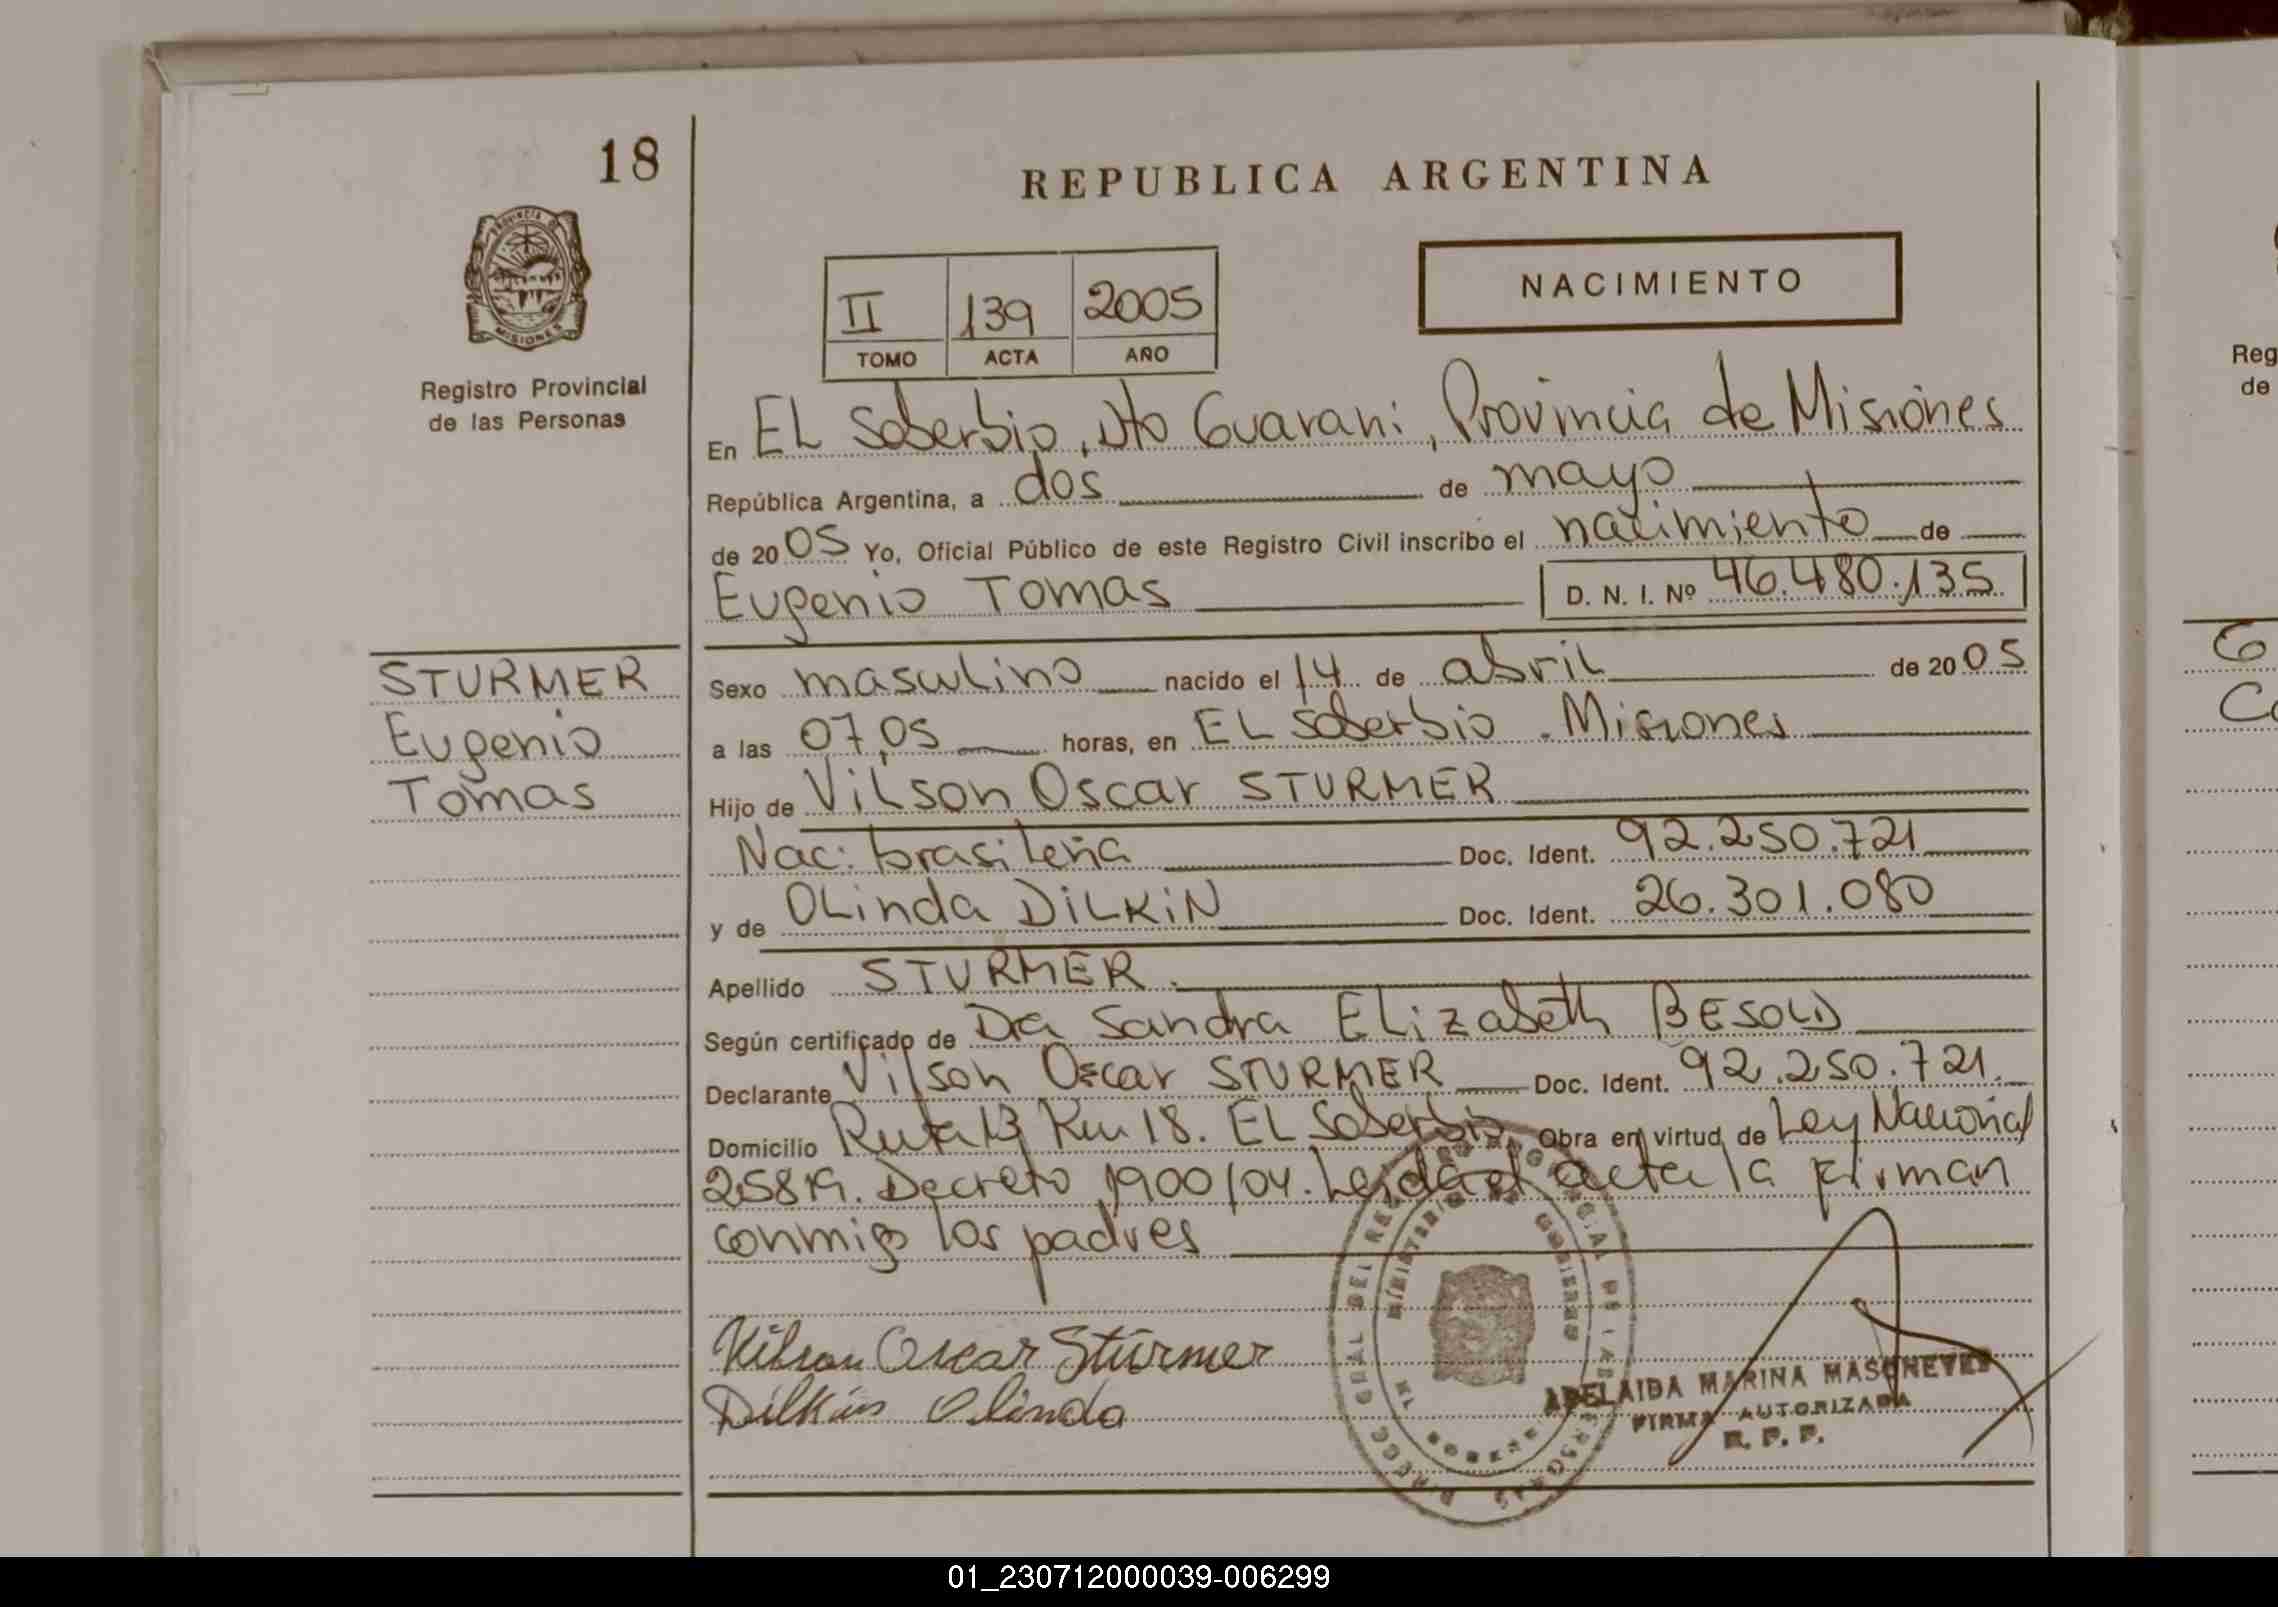 18
REPUBLICA ARGENTINA
PROVINCIA DE
MISIONES
Registro Provincial
de las Personas
NACIMIENTO
II 139 2005
TOMO ACTA AÑO
En EL Soberbio, Dto Guarani, Provincia de Misiones
República Argentina, a dos de mayo
de 2005 Yo, Oficial Público de este Registro Civil inscribo el nacimiento de
Eugenio Tomas D. N. I. Nº 46.480.135
STURMER
Eugenio
Tomas
Sexo masculino nacido el 14 de abril de 2005
a las 07,05 horas, en EL Soberbio . Misiones
Hijo de Vilson Oscar STURMER
Nac: brasileña Doc. Ident. 92.250.721
y de OLinda DILKIN Doc. Ident. 26.301.080
Apellido STURMER.
Según certificado de Dra Sandra Elizabeth BESOLD
Declarante Vilson Oscar STURMER Doc. Ident. 92.250.721.
Domicilio Ruta 13 Km 18. EL Soberbio Obra en virtud de Ley Nacional
25819. Decreto 1900/04. Leida el acta la firman
conmigo los padres
Vilson Oscar Stürmer
Dilkin Olinda
MINISTERIO DE GOBIERNO
ADELAIDA MARINA MASONEVES
FIRMA AUTORIZADA
R. P. P.
Reg
de
01_230712000039-006299